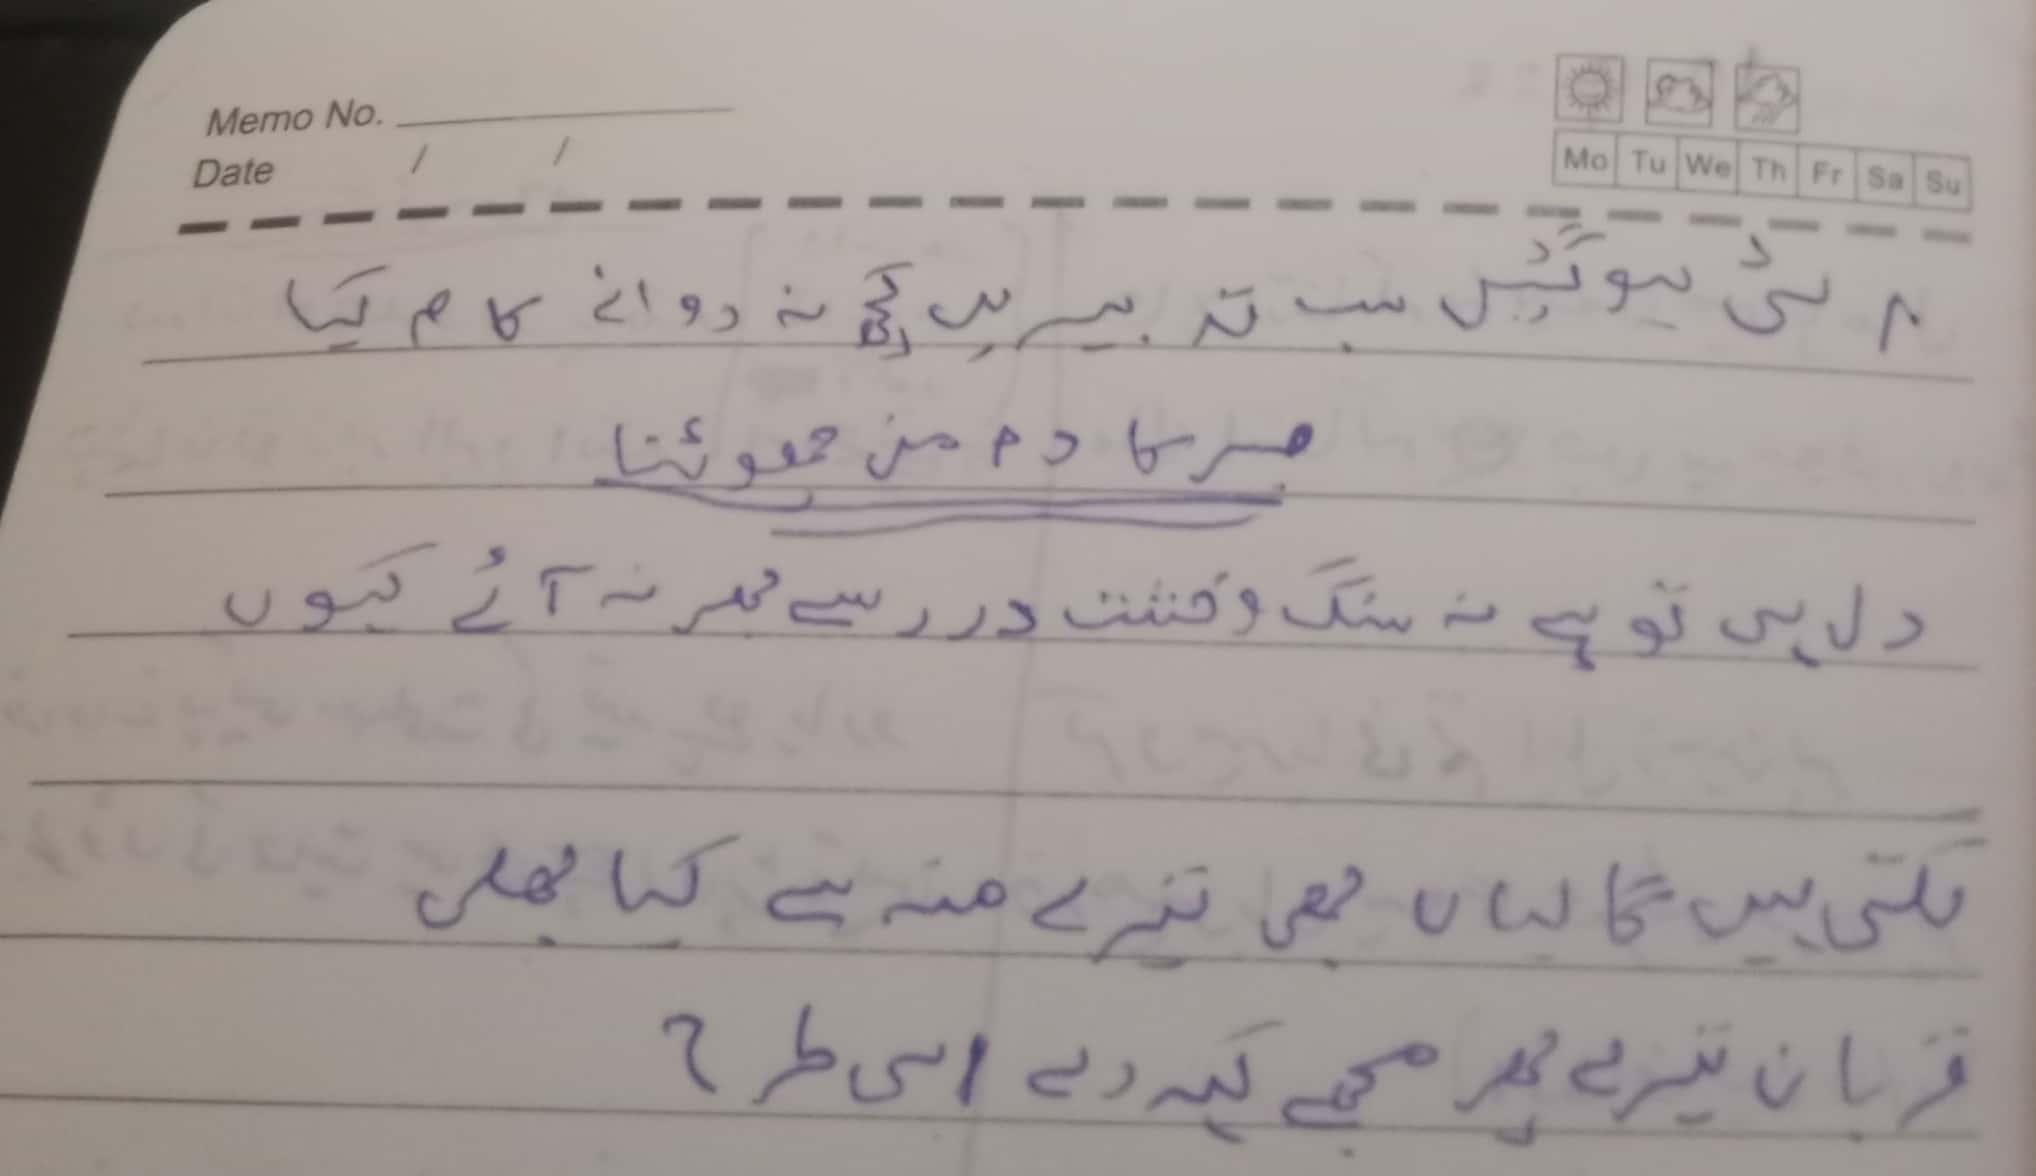 Memo No.
Date / /
Mo Tu We Th Fr Sa Su
الٹی ہوگئیں سب تدبیریں کچھ نہ دوانے کام کیا
کا دم میں
دل ہی تو ہے نہ سنگ و خشت درد سے بھر نہ آئے کیوں
لگتی ہیں گالیاں بھی تیرے منہ سے کیا بھلی
قربان تیرے پھر مجھے کہہ دے اسی طرح